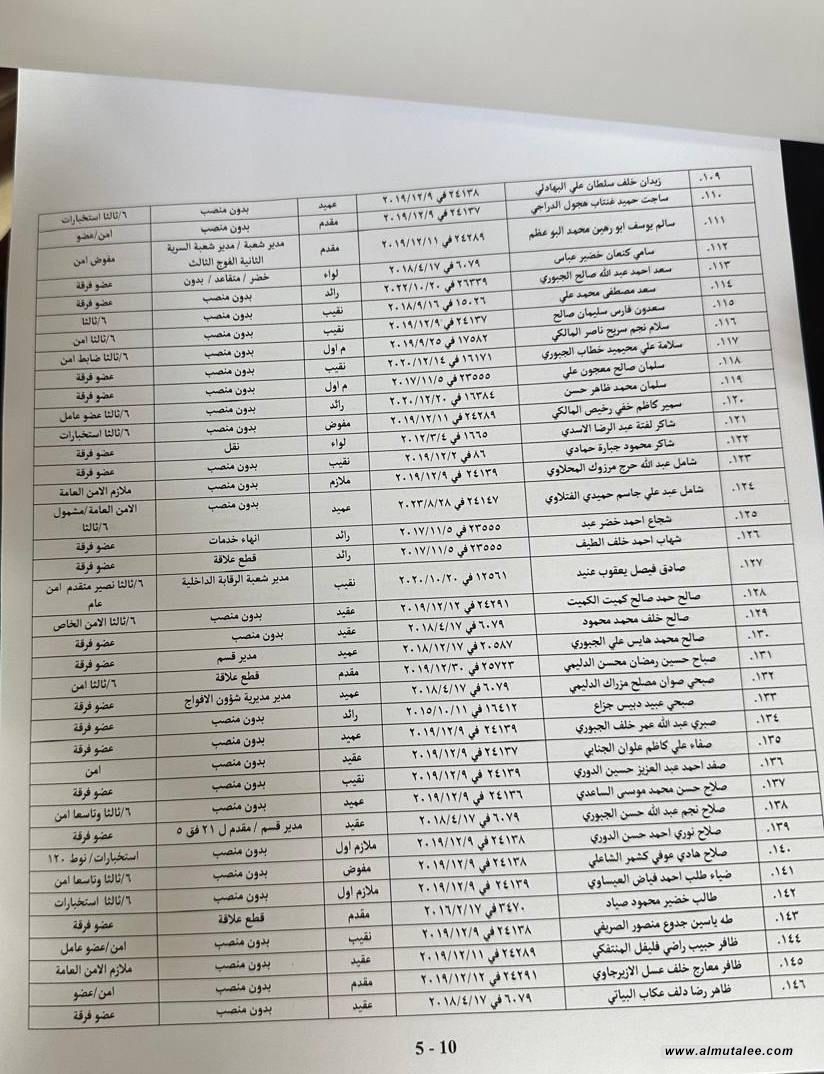 ١٠٩. زيدان خلف سلطان علي البهادلي ٢٤١٣٨ في ٢٠١٩/١٢/٩ عميد بدون منصب ٦/ثالثا استخبارات
١١٠. ساجت حميد غنتاب هجول الدراجي ٢٤١٣٧ في ٢٠١٩/١٢/٩ مقدم بدون منصب امن/عضو
١١١. سالم يوسف ابو رهين محمد البو عظم ٢٤٢٨٩ في ٢٠١٩/١٢/١١ مقدم مدير شعبة / مدير شعبة السرية الثانية الفوج الثالث مفوض امن
١١٢. سامي كنعان خضير عباس ٦٠٧٩ في ٢٠١٨/٤/١٧ لواء خضر / متقاعد / بدون عضو فرقة
١١٣. سعد احمد عبد الله صالح الجبوري ٢٦٣٣٩ في ٢٠٢٢/١٠/٢٠ رائد بدون منصب عضو فرقة
١١٤. سعد مصطفى محمد علي ١٥٠٢٦ في ٢٠١٨/٩/١٦ نقيب بدون منصب ٦/ثالثا
١١٥. سعدون فارس سليمان صالح ٢٤١٣٧ في ٢٠١٩/١٢/٩ نقيب بدون منصب ٦/ثالثا امن
١١٦. سلام نجم سريح ناصر المالكي ١٧٥٨٢ في ٢٠١٩/٩/٢٥ م اول بدون منصب ٦/ثالثا ضابط امن
١١٧. سلامة علي محيميد خطاب الجبوري ١٦١٧١ في ٢٠٢٠/١٢/١٤ نقيب بدون منصب عضو فرقة
١١٨. سلمان صالح معجون علي ٢٣٥٥٥ في ٢٠١٧/١١/٥ م اول بدون منصب عضو فرقة
١١٩. سلمان محمد ظاهر حسن ١٦٣٨٤ في ٢٠٢٠/١٢/٢٠ رائد بدون منصب ٦/ثالثا عضو عامل
١٢٠. سمير كاظم خفي رخيص المالكي ٢٤٢٨٩ في ٢٠١٩/١٢/١١ مفوض بدون منصب ٦/ثالثا استخبارات
١٢١. شاكر لفتة عبد الرضا الاسدي ١٦٦٥ في ٢٠١٢/٣/٤ لواء نقل عضو فرقة
١٢٢. شاكر محمود جبارة حمادي ٨٦ في ٢٠١٩/١٢/٢ نقيب بدون منصب عضو فرقة
١٢٣. شامل عبد الله حرج مرزوك المحلاوي ٢٤١٣٩ في ٢٠١٩/١٢/٩ ملازم بدون منصب ملازم الامن العامة
١٢٤. شامل عبد علي جاسم حميدي الفتلاوي ٢٤١٤٧ في ٢٠٢٣/٨/٢٨ عميد بدون منصب الامن العامة/مشمول ٦/ثالثا
١٢٥. شجاع احمد خضر عبد ٢٣٥٥٥ في ٢٠١٧/١١/٥ رائد انهاء خدمات عضو فرقة
١٢٦. شهاب احمد خلف الطيف ٢٣٥٥٥ في ٢٠١٧/١١/٥ رائد قطع علاقة عضو فرقة
١٢٧. صادق فيصل يعقوب عنيد ١٢٥٦١ في ٢٠٢٠/١٠/٢٠ نقيب مدير شعبة الرقابة الداخلية ٦/ثالثا نصير متقدم امن عام
١٢٨. صالح حمد صالح كميت الكميت ٢٤٢٩١ في ٢٠١٩/١٢/١٢ عقيد بدون منصب ٦/ثالثا الامن الخاص
١٢٩. صالح خلف محمد محمود ٦٠٧٩ في ٢٠١٨/٤/١٧ عقيد بدون منصب عضو فرقة
١٣٠. صالح محمد هايس علي الجبوري ٢٠٥٨٧ في ٢٠١٨/١٢/١٧ عميد مدير قسم عضو فرقة
١٣١. صباح حسين رمضان محسن الدليمي ٢٥٧٢٣ في ٢٠١٩/١٢/٣٠ مقدم قطع علاقة ٦/ثالثا امن
١٣٢. صبحي صوان مصلح مزراك الدليمي ٦٠٧٩ في ٢٠١٨/٤/١٧ عميد مدير مديرية شؤون الافواج عضو فرقة
١٣٣. صبحي عبيد دبيس جزاع ١٦٤١٢ في ٢٠١٥/١٠/١١ رائد بدون منصب عضو فرقة
١٣٤. صبري عبد الله عمر خلف الجبوري ٢٤١٣٩ في ٢٠١٩/١٢/٩ عميد بدون منصب عضو فرقة
١٣٥. صفاء علي كاظم علوان الجنابي ٢٤١٣٧ في ٢٠١٩/١٢/٩ عقيد بدون منصب امن
١٣٦. صفد احمد عبد العزيز حسين الدوري ٢٤١٣٩ في ٢٠١٩/١٢/٩ نقيب بدون منصب عضو فرقة
١٣٧. صلاح حسن محمد موسى الساعدي ٢٤١٣٦ في ٢٠١٩/١٢/٩ عميد بدون منصب ٦/ثالثا وتاسعا امن
١٣٨. صلاح نجم عبد الله حسن الجبوري ٦٠٧٩ في ٢٠١٨/٤/١٧ عقيد مدير قسم / مقدم ل ٢١ فق ٥ عضو فرقة
١٣٩. صلاح نوري احمد حسن الدوري ٢٤١٣٨ في ٢٠١٩/١٢/٩ ملازم اول بدون منصب استخبارات/ نوط ١٢٠
١٤٠. صلاح هادي عوفي كشمر الشاعلي ٢٤١٣٨ في ٢٠١٩/١٢/٩ مفوض بدون منصب ٦/ثالثا وتاسعا امن
١٤١. ضياء طلب احمد فياض العيساوي ٢٤١٣٩ في ٢٠١٩/١٢/٩ ملازم اول بدون منصب ٦/ثالثا استخبارات
١٤٢. طالب خضير محمود صياد ٣٤٧٠ في ٢٠١٦/٢/١٧ مقدم قطع علاقة عضو فرقة
١٤٣. طه ياسين جدوع منصور الصريفي ٢٤١٣٨ في ٢٠١٩/١٢/٩ نقيب بدون منصب امن/عضو عامل
١٤٤. ظافر حبيب راضي فليفل المنتفكي ٢٤٢٨٩ في ٢٠١٩/١٢/١١ عقيد بدون منصب ملازم الامن العامة
١٤٥. ظافر معارج خلف عسل الازيرجاوي ٢٤٢٩١ في ٢٠١٩/١٢/١٢ مقدم بدون منصب امن/عضو
١٤٦. ظاهر رضا دلف عكاب البياتي ٦٠٧٩ في ٢٠١٨/٤/١٧ عقيد بدون منصب عضو فرقة
5 - 10
www.almutalee.com